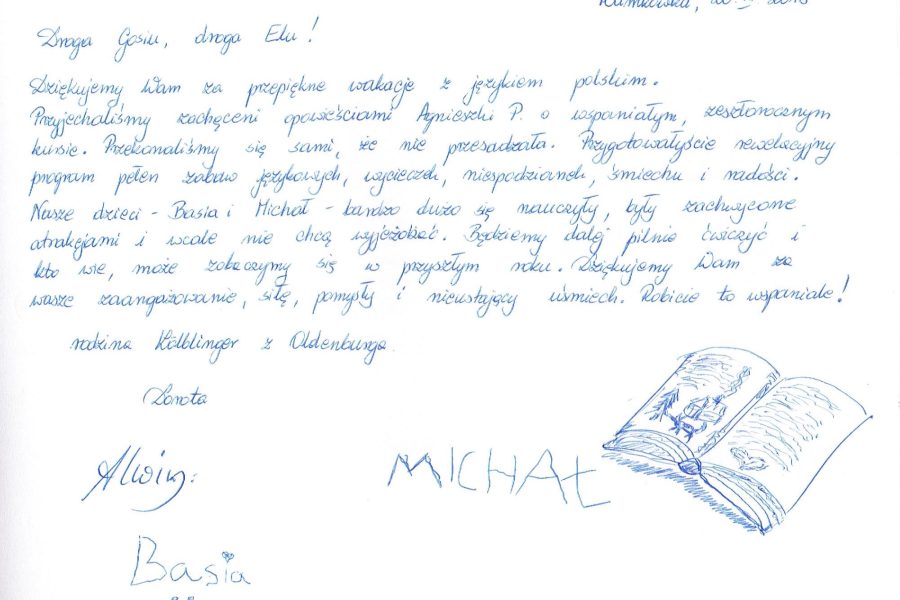 Droga Gosiu, droga Elu!
Dziękujemy Wam za przepiękne wakacje z językiem polskim.
Przyjechaliśmy zachęceni opowieściami Agnieszki P. o wspaniałym, zeszłorocznym
kursie. Przekonaliśmy się sami, że nie przesadzała. Przygotowałyście rewelacyjny
program pełen zabaw językowych, wycieczek, niespodzianek, śmiechu i radości.
Nasze dzieci - Basia i Michał - bardzo dużo się nauczyły, były zachwycone
atrakcjami i wcale nie chcą wyjeżdżać. Będziemy dalej pilnie ćwiczyć i
kto wie, może zobaczymy się w przyszłym roku. Dziękujemy Wam za
wasze zaangażowanie, siłę, pomysły i nieustający uśmiech. Robicie to wspaniale!
rodzina Kölblinger z Oldenburga
Dorota
MICHAŁ
Basia